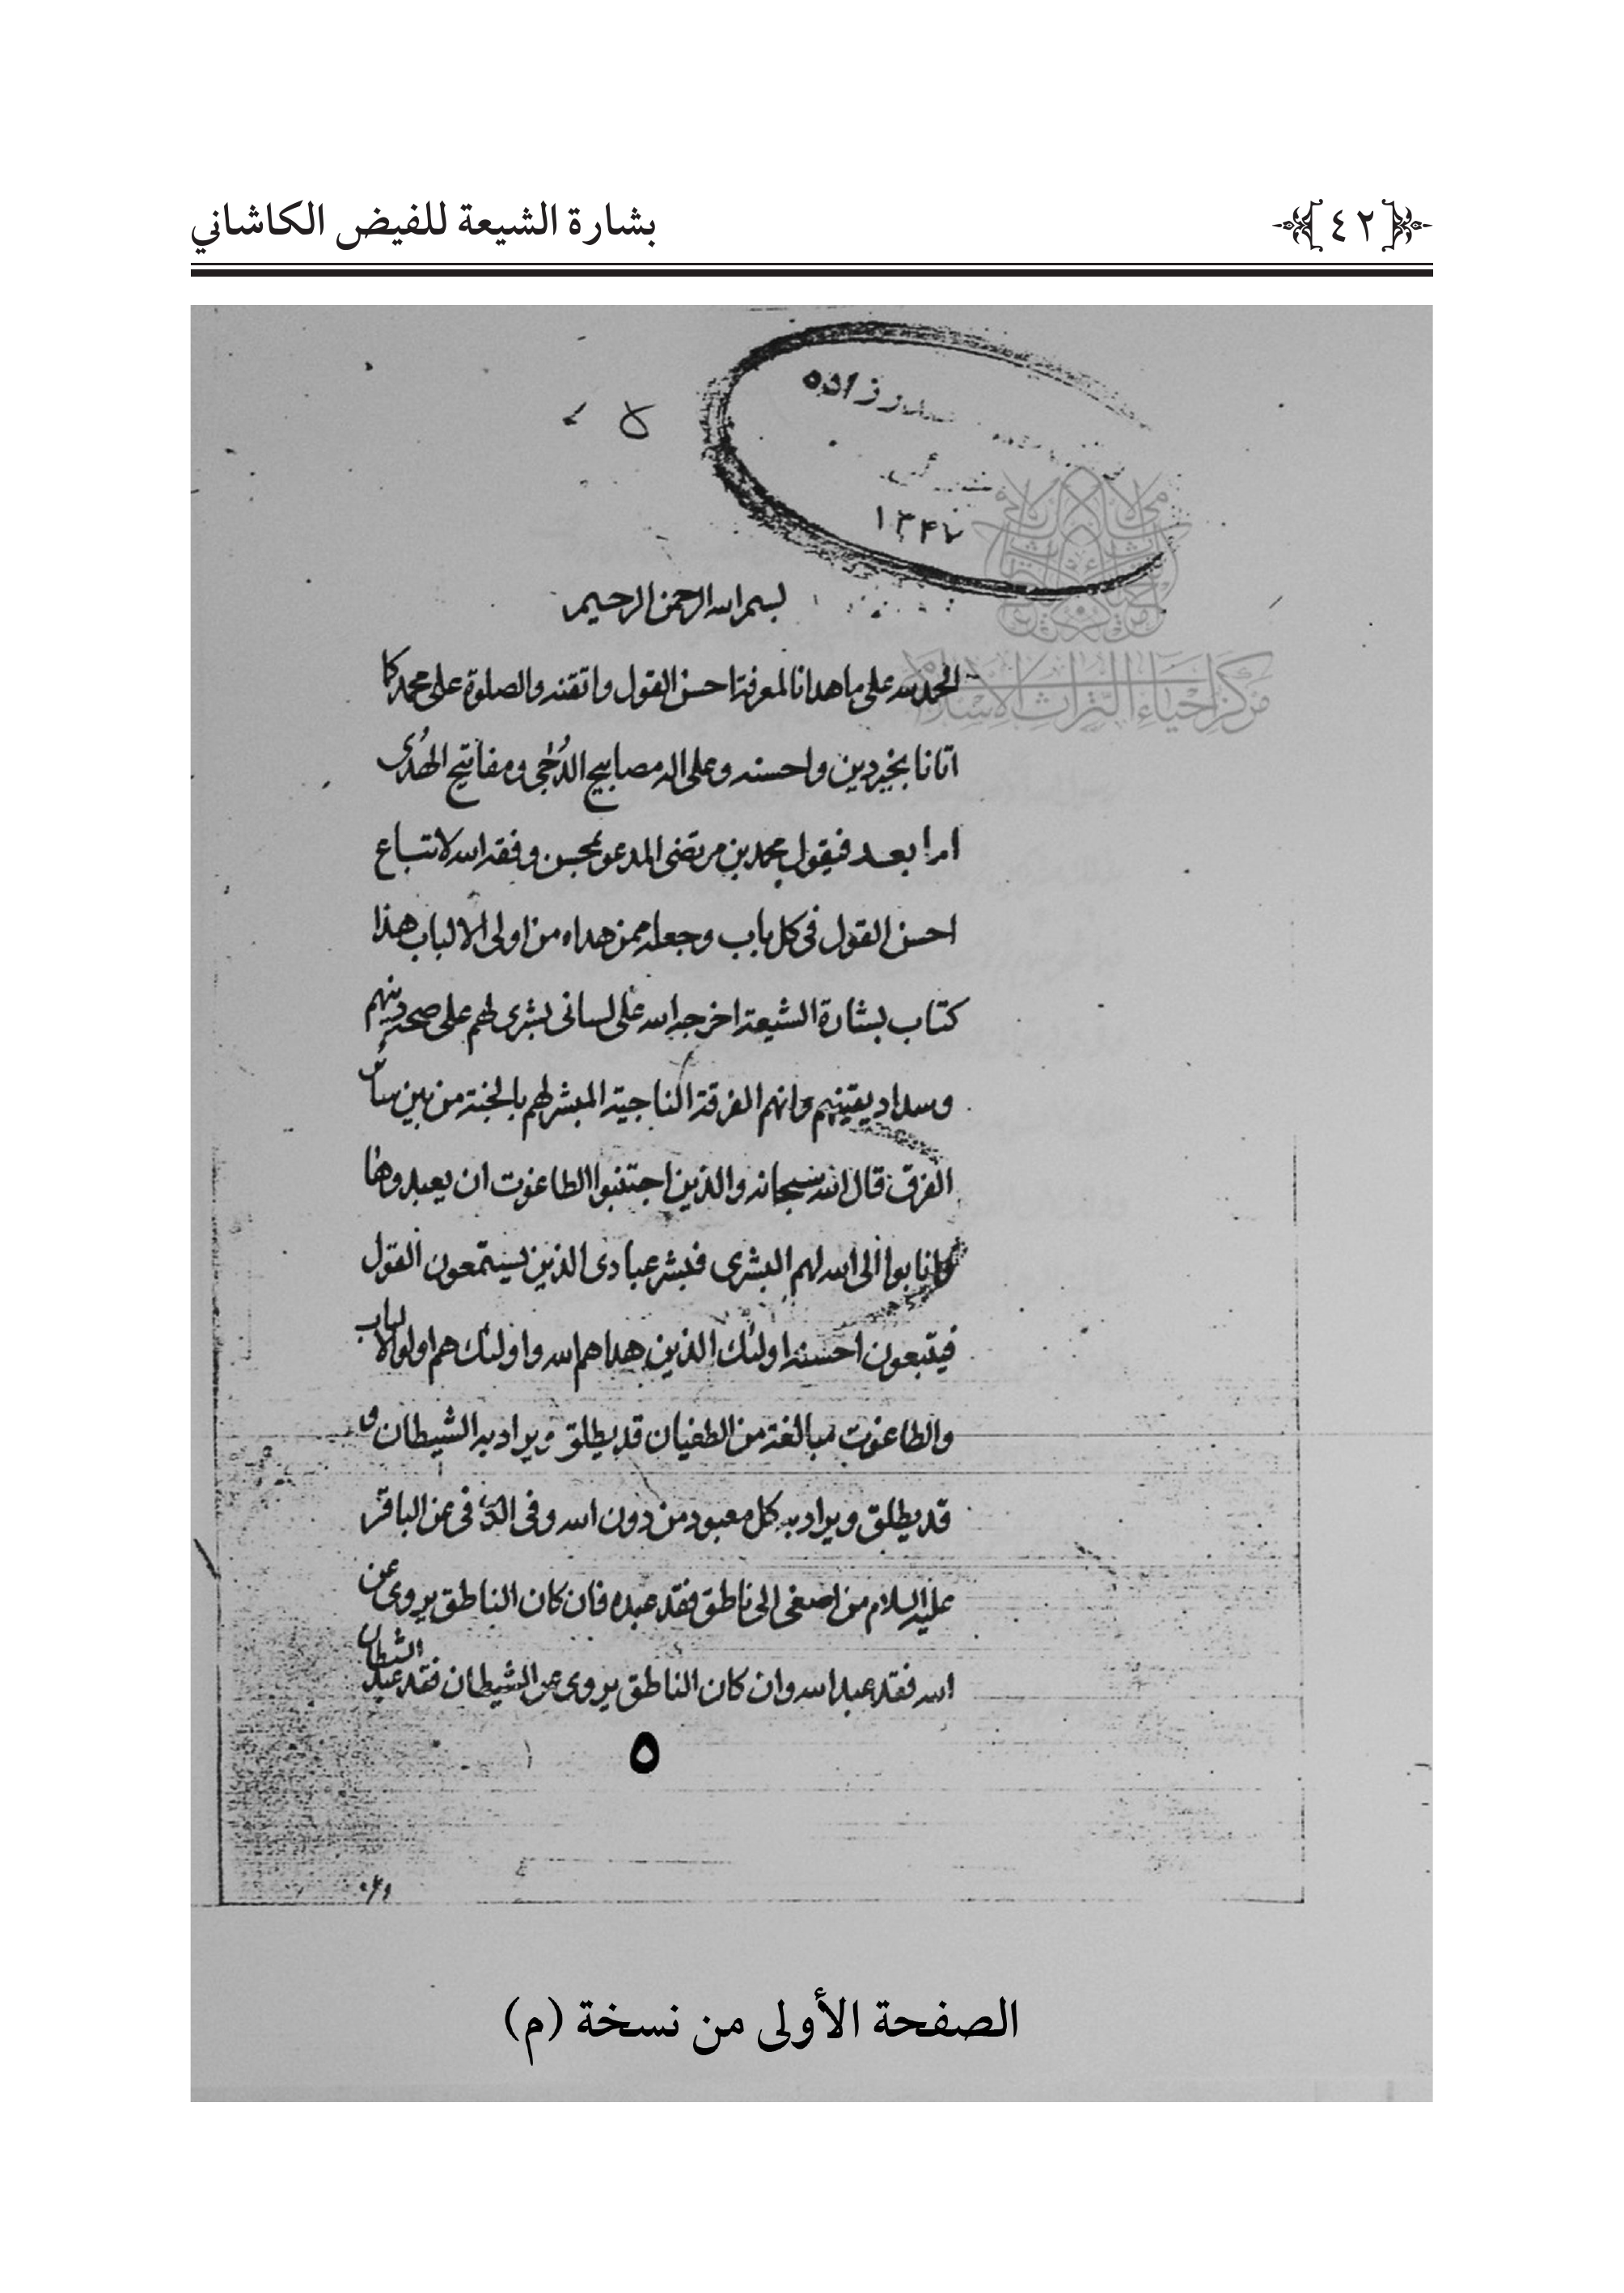 بشارة الشيعة للفيض الكاشاني
٤٢
١٣٤٧
بسم الله الرحمن الرحيم
مركز إحياء التراث الإسلامي
الحمد لله على ما هدانا لمعرفة احسن القول واتقنه والصلوة على محمد كما
اتانا بخير دين واحسنه وعلى اله مصابيح الدُجى ومفاتيح الهُدى
اما بعد فيقول محمد بن مرتضى المدعو بمحسن وفقه الله لاتباع
احسن القول فى كل باب وجعله ممن هداه من اولى الالباب هذا
كتاب بشارة الشيعة اخرجه الله على لسانى بشرى لهم على صحة دينهم
وسداد يقينهم وانهم الفرقة الناجية المبشر لهم بالجنة من بين سائر
الفرق قال الله سبحانه والذين اجتنبوا الطاغوت ان يعبدوها
وانابوا الى الله لهم البشرى فبشر عبادى الذين يستمعون القول
فيتبعون احسنه اولئك الذين هداهم الله واولئك هم اولوا الالباب
والطاغوت مبالغة من الطغيان قد يطلق ويراد به الشيطان و
قد يطلق ويراد به كل معبود من دون الله وفى الكافى عن الباقر
عليه السلام من اصغى الى ناطق فقد عبده فان كان الناطق يروى عن
الله فقد عبد الله وان كان الناطق يروى عن الشيطان فقد عبد الشيطان
٥
الصفحة الأولى من نسخة (م)